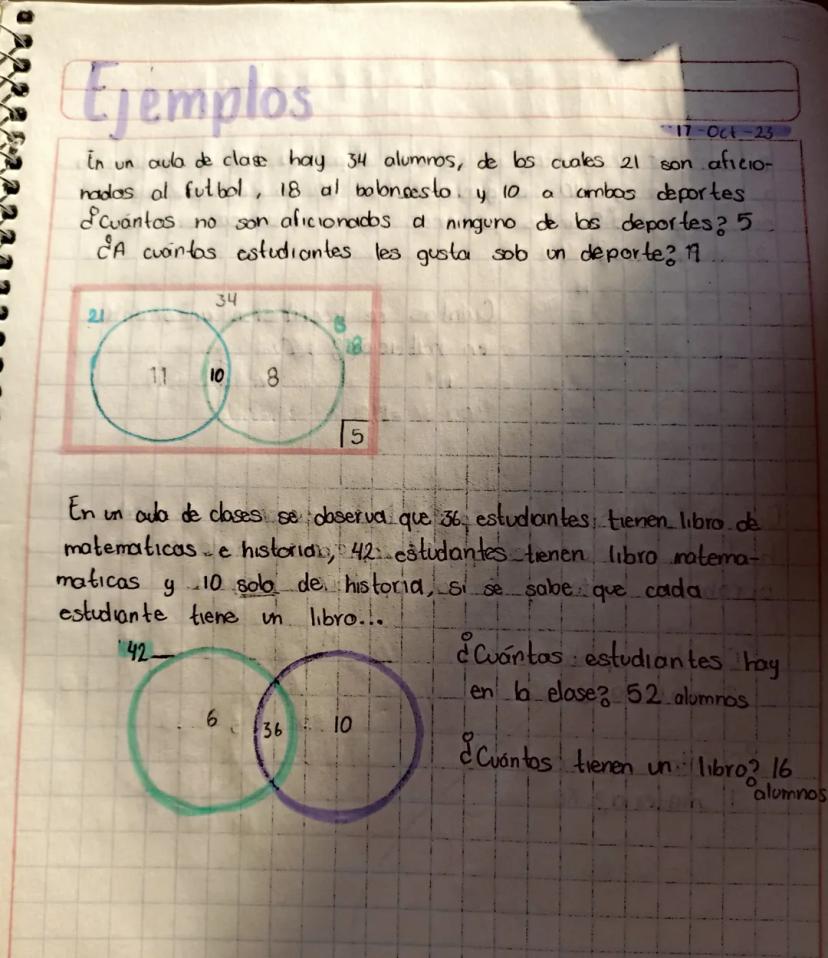 Ejemplos
17-Oct-23
En un aula de clase hay 34 alumnos, de los cuales 21 son aficio-
nados al futbol, 18 al baloncesto y 10 a ambos deportes
¿Cuántos no son aficionados a ninguno de los deportes? 5
¿A cuántos estudiantes les gusta solo un deporte? 19
34
21
8
18
11
10
8
5
En un aula de clases se observa que 36 estudiantes tienen libro de
matematicas e historia, 42 estudantes tienen libro matema-
maticas y 10 solo de historia, si se sabe que cada
estudiante tiene un libro...
42
6
36
10
¿Cuántos estudiantes hay
en la clase? 52 alumnos
¿Cuántos tienen un libro? 16
alumnos